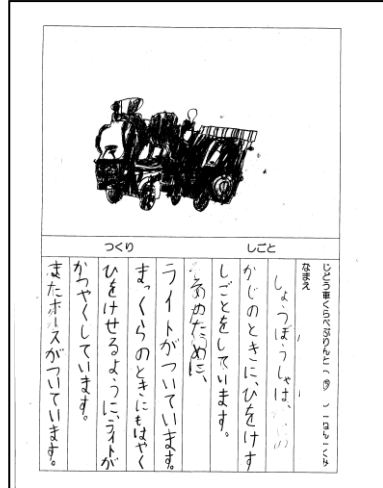 しごと
つくり
じどう車くらべぷりんと
なまえ
しょうぼうしゃは、
かじのときに、ひをけす
しごとをしています。
そのために、
ライトがついています。
まっくらのときにもはやく
ひをけせるように、ライトが
かつやくしています。
またホースがついています。